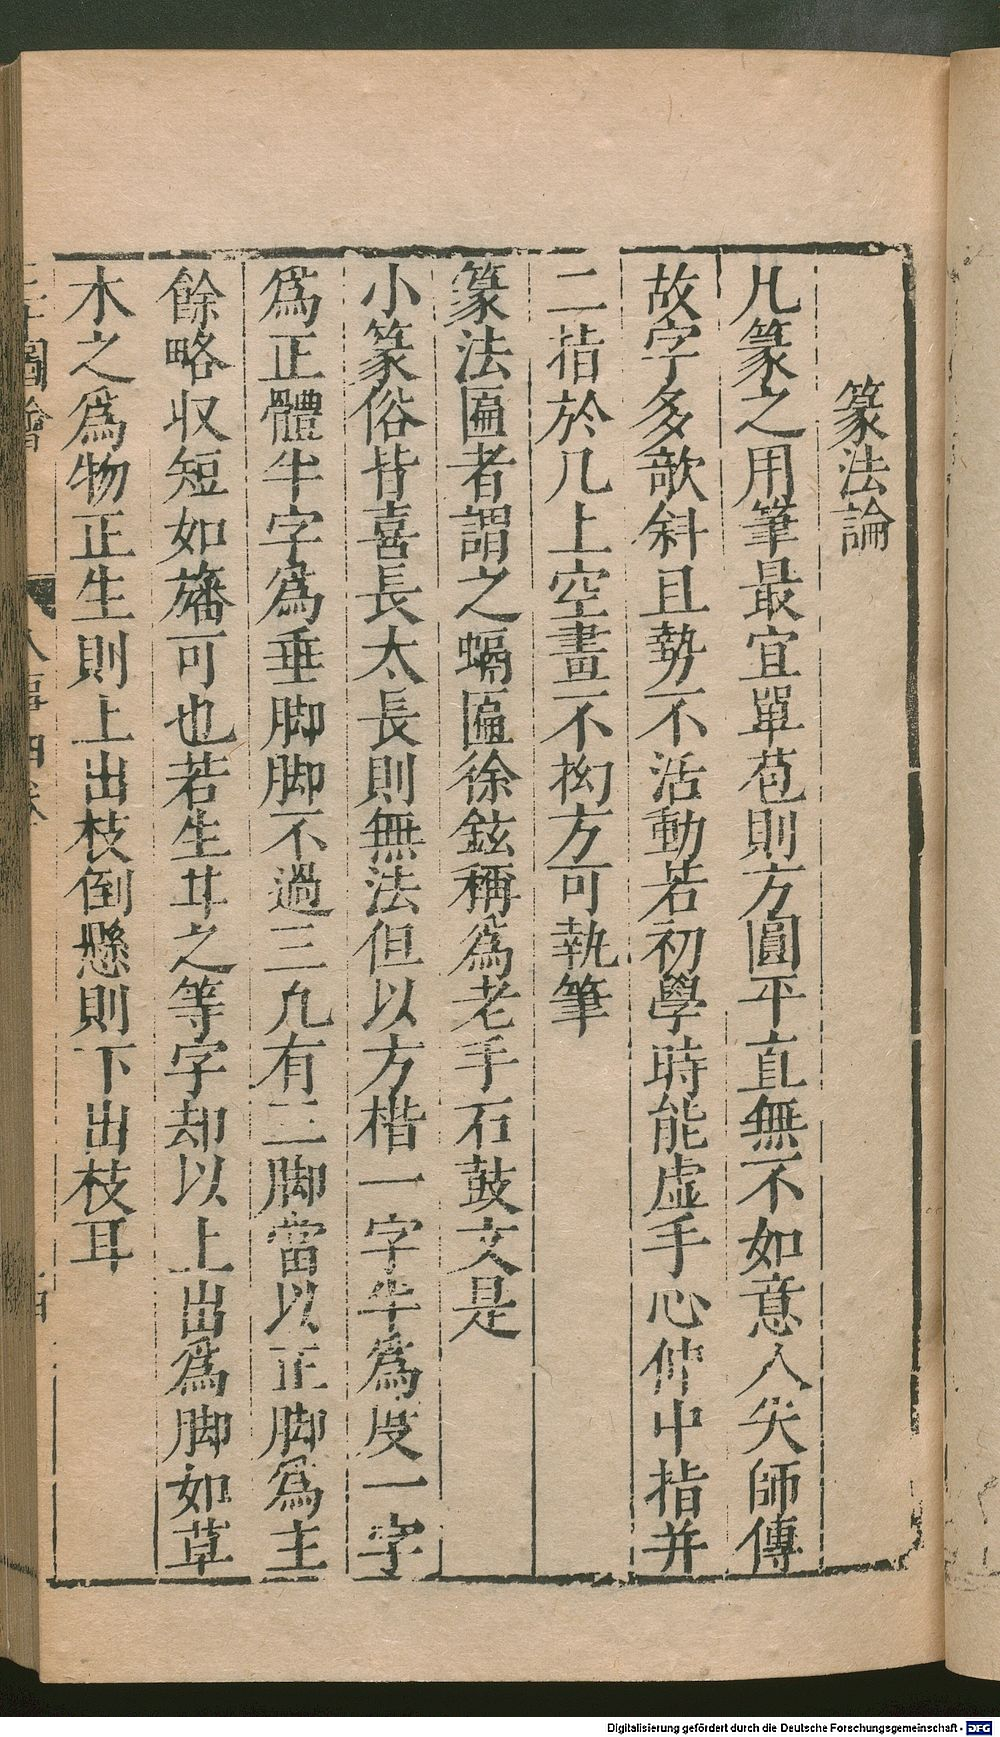 篆法論
凡篆之用筆最宜單苞則方圓平直無不如意人失師傳
故字多欹斜且勢不活動若初學時能虚手心伸中指并
二指於几上空畫不拗方可執筆
篆法匾者謂之蝸匾徐鉉稱爲老手石鼓文是
小篆俗皆喜長太長則無法但以方楷一字半爲度一字
爲正體半字爲垂脚脚不過三凢有二脚當以正脚爲主
餘略収短如旛可也若生丼之等字却以上出爲脚如草
木之爲物正生則上出枝倒懸則下出枝耳
圖會
Digitalisierung gefördert durch die Deutsche Forschungsgemeinschaft - DFG